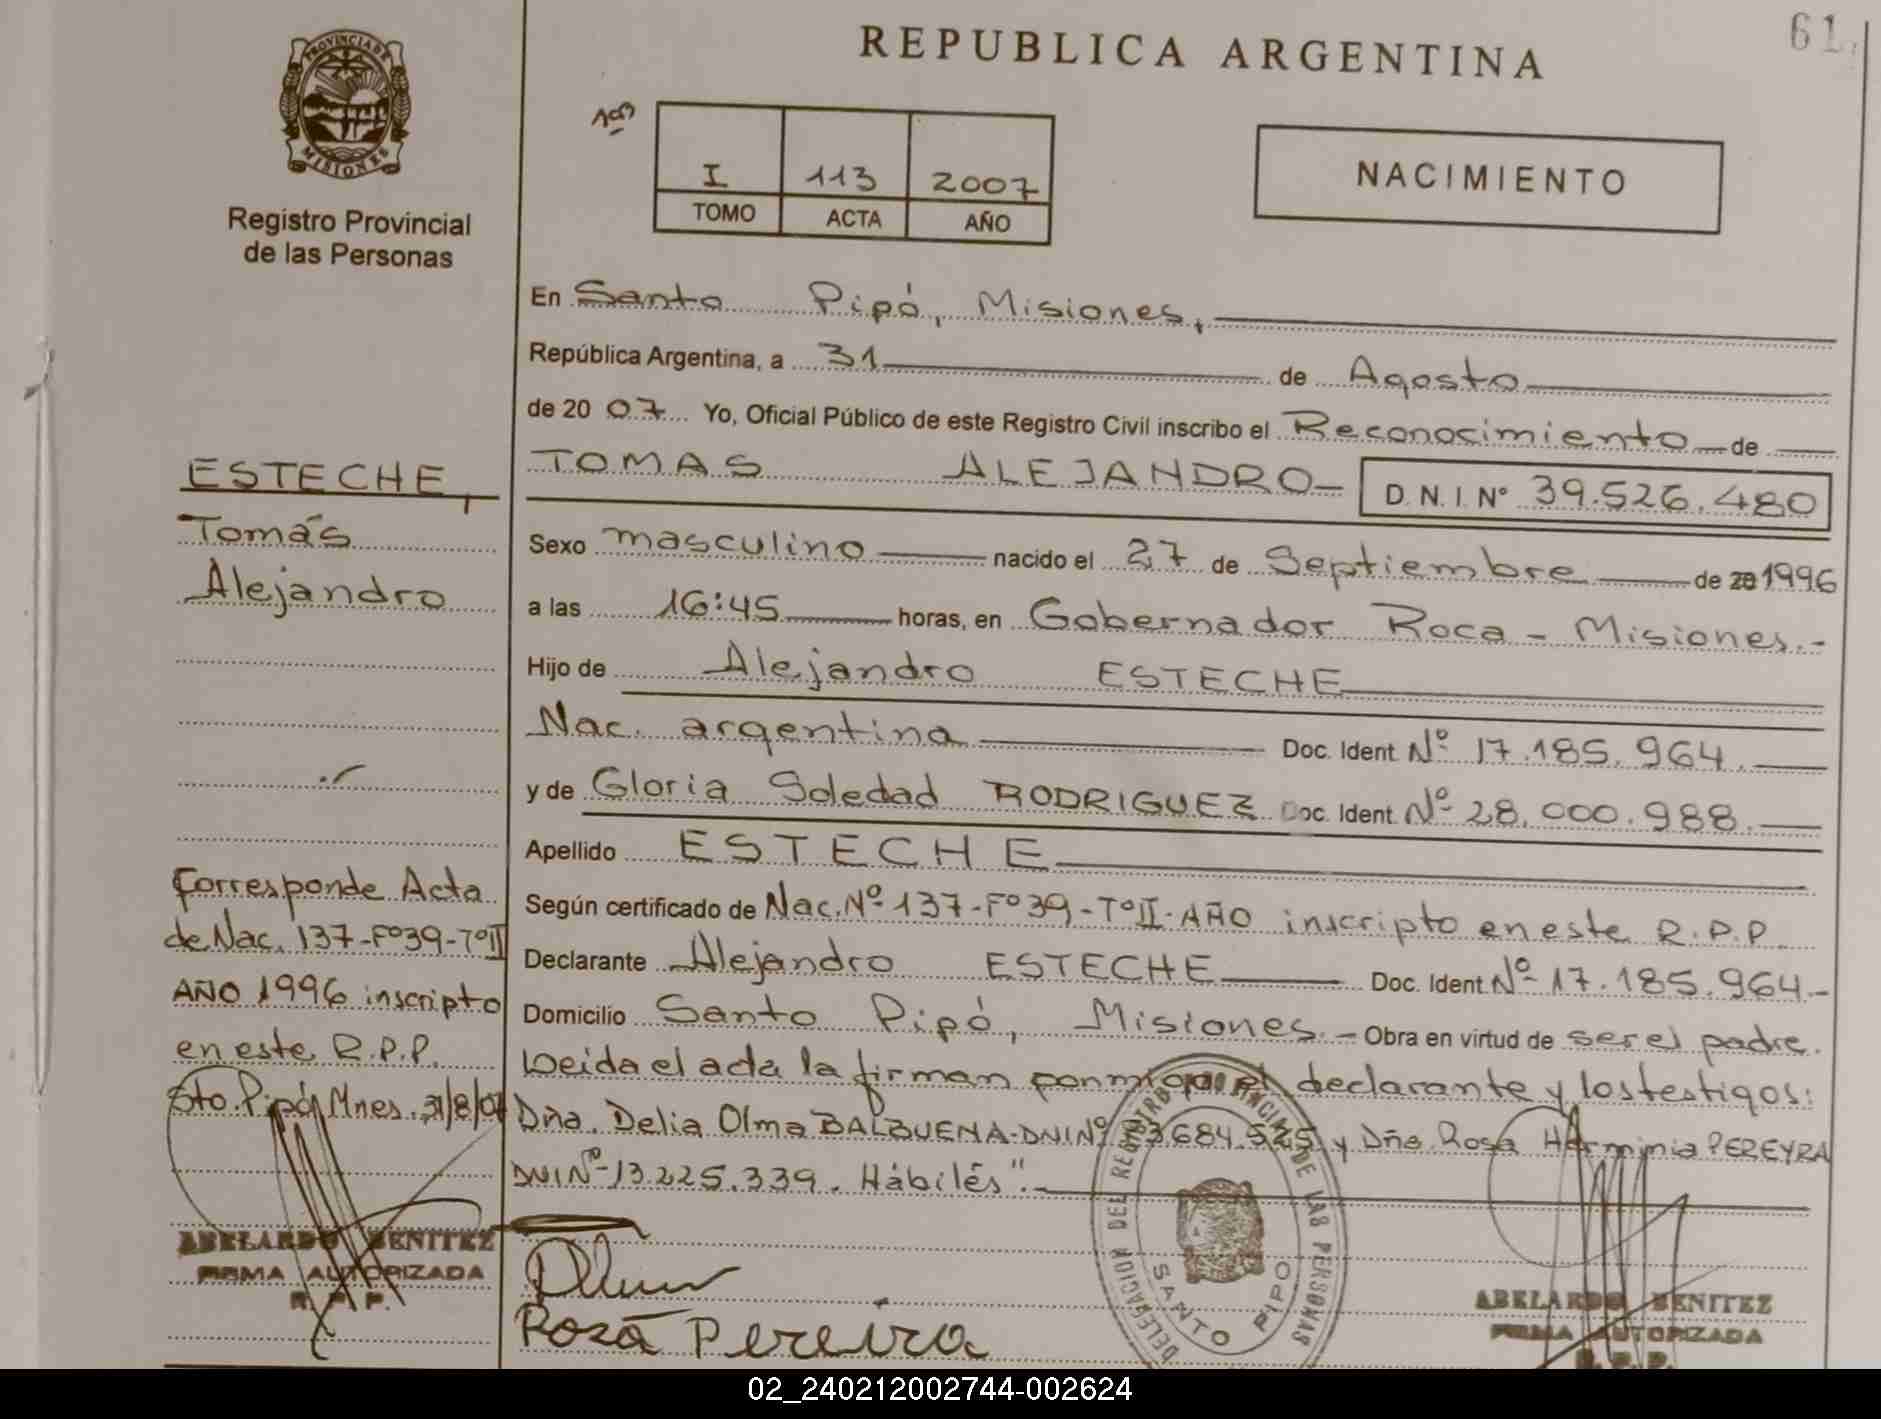 61.
REPUBLICA ARGENTINA
PROVINCIA DE
MISIONES
Registro Provincial
de las Personas
I 113 2007
TOMO ACTA AÑO
NACIMIENTO
En Santo Pipó, Misiones,
República Argentina, a 31 de Agosto
de 20 07 Yo, Oficial Público de este Registro Civil inscribo el Reconocimiento de
TOMAS ALEJANDRO D.N.I. Nº 39.526.480
Sexo masculino nacido el 27 de Septiembre de 20 1996
a las 16:45 horas, en Gobernador Roca - Misiones.-
Hijo de Alejandro ESTECHE
Nac. argentina Doc. Ident Nº 17.185.964.
y de Gloria Soledad RODRIGUEZ Doc. Ident. Nº 28.000.988.
Apellido ESTECHE
Según certificado de Nac. Nº 137-Fº39-TºII-AÑO inscripto en este R.P.P.
Declarante Alejandro ESTECHE Doc. Ident Nº 17.185.964.-
Domicilio Santo Pipó, Misiones.- Obra en virtud de ser el padre.
Leida el acta la firman el declarante y los testigos:
Dña. Delia Olma BALBUENA-DNINº y Dña. Rosa Herminia PEREYRA
DNINº-13.225.339. Hábilés".-
ESTECHE,
Tomás
Alejandro
Corresponde Acta
de Nac. 137-Fº39-TºII
AÑO 1996 inscripto
en este R.P.P.
Sto. Pipó, Mnes. 31/8/07
ABELARDO BENITEZ
FIRMA AUTORIZADA
R. P. P.
Rosa Pereira
DELEGACION DEL REGISTRO PROVINCIAL DE LAS PERSONAS
SANTO PIPO
ABELARDO BENITEZ
FIRMA AUTORIZADA
R. P. P.
02_240212002744-002624